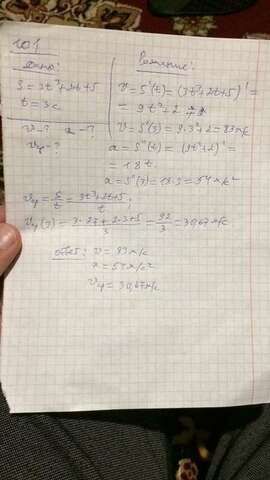 101
Дано:
S = 3t³+2t+5
t = 3c
v - ? a - ?
vср - ?
Решение:
v = S'(t) = (3t³+2t+5)' =
= 9t²+2
v = S'(3) = 9·3²+2 = 83 м/с
a = S''(t) = (9t²+2)' =
= 18t.
a = S''(3) = 18·3 = 54 м/с²
vср = S/t = 3t³+2t+5/t.
vср(3) = 3·27+2·3+5/3 = 92/3 = 30,67 м/с
Ответ: v = 83 м/с
a = 54 м/с²
vср = 30,67 м/с